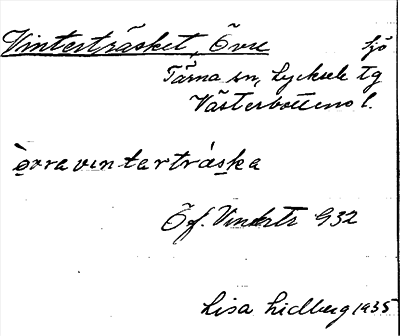 Vinterträsket, Övre sjö
Tärna sn, Lycksele tg
Västerbottens l.
òvravintarträska
Öf. Vindertr 932
Lisa Lidberg 1935